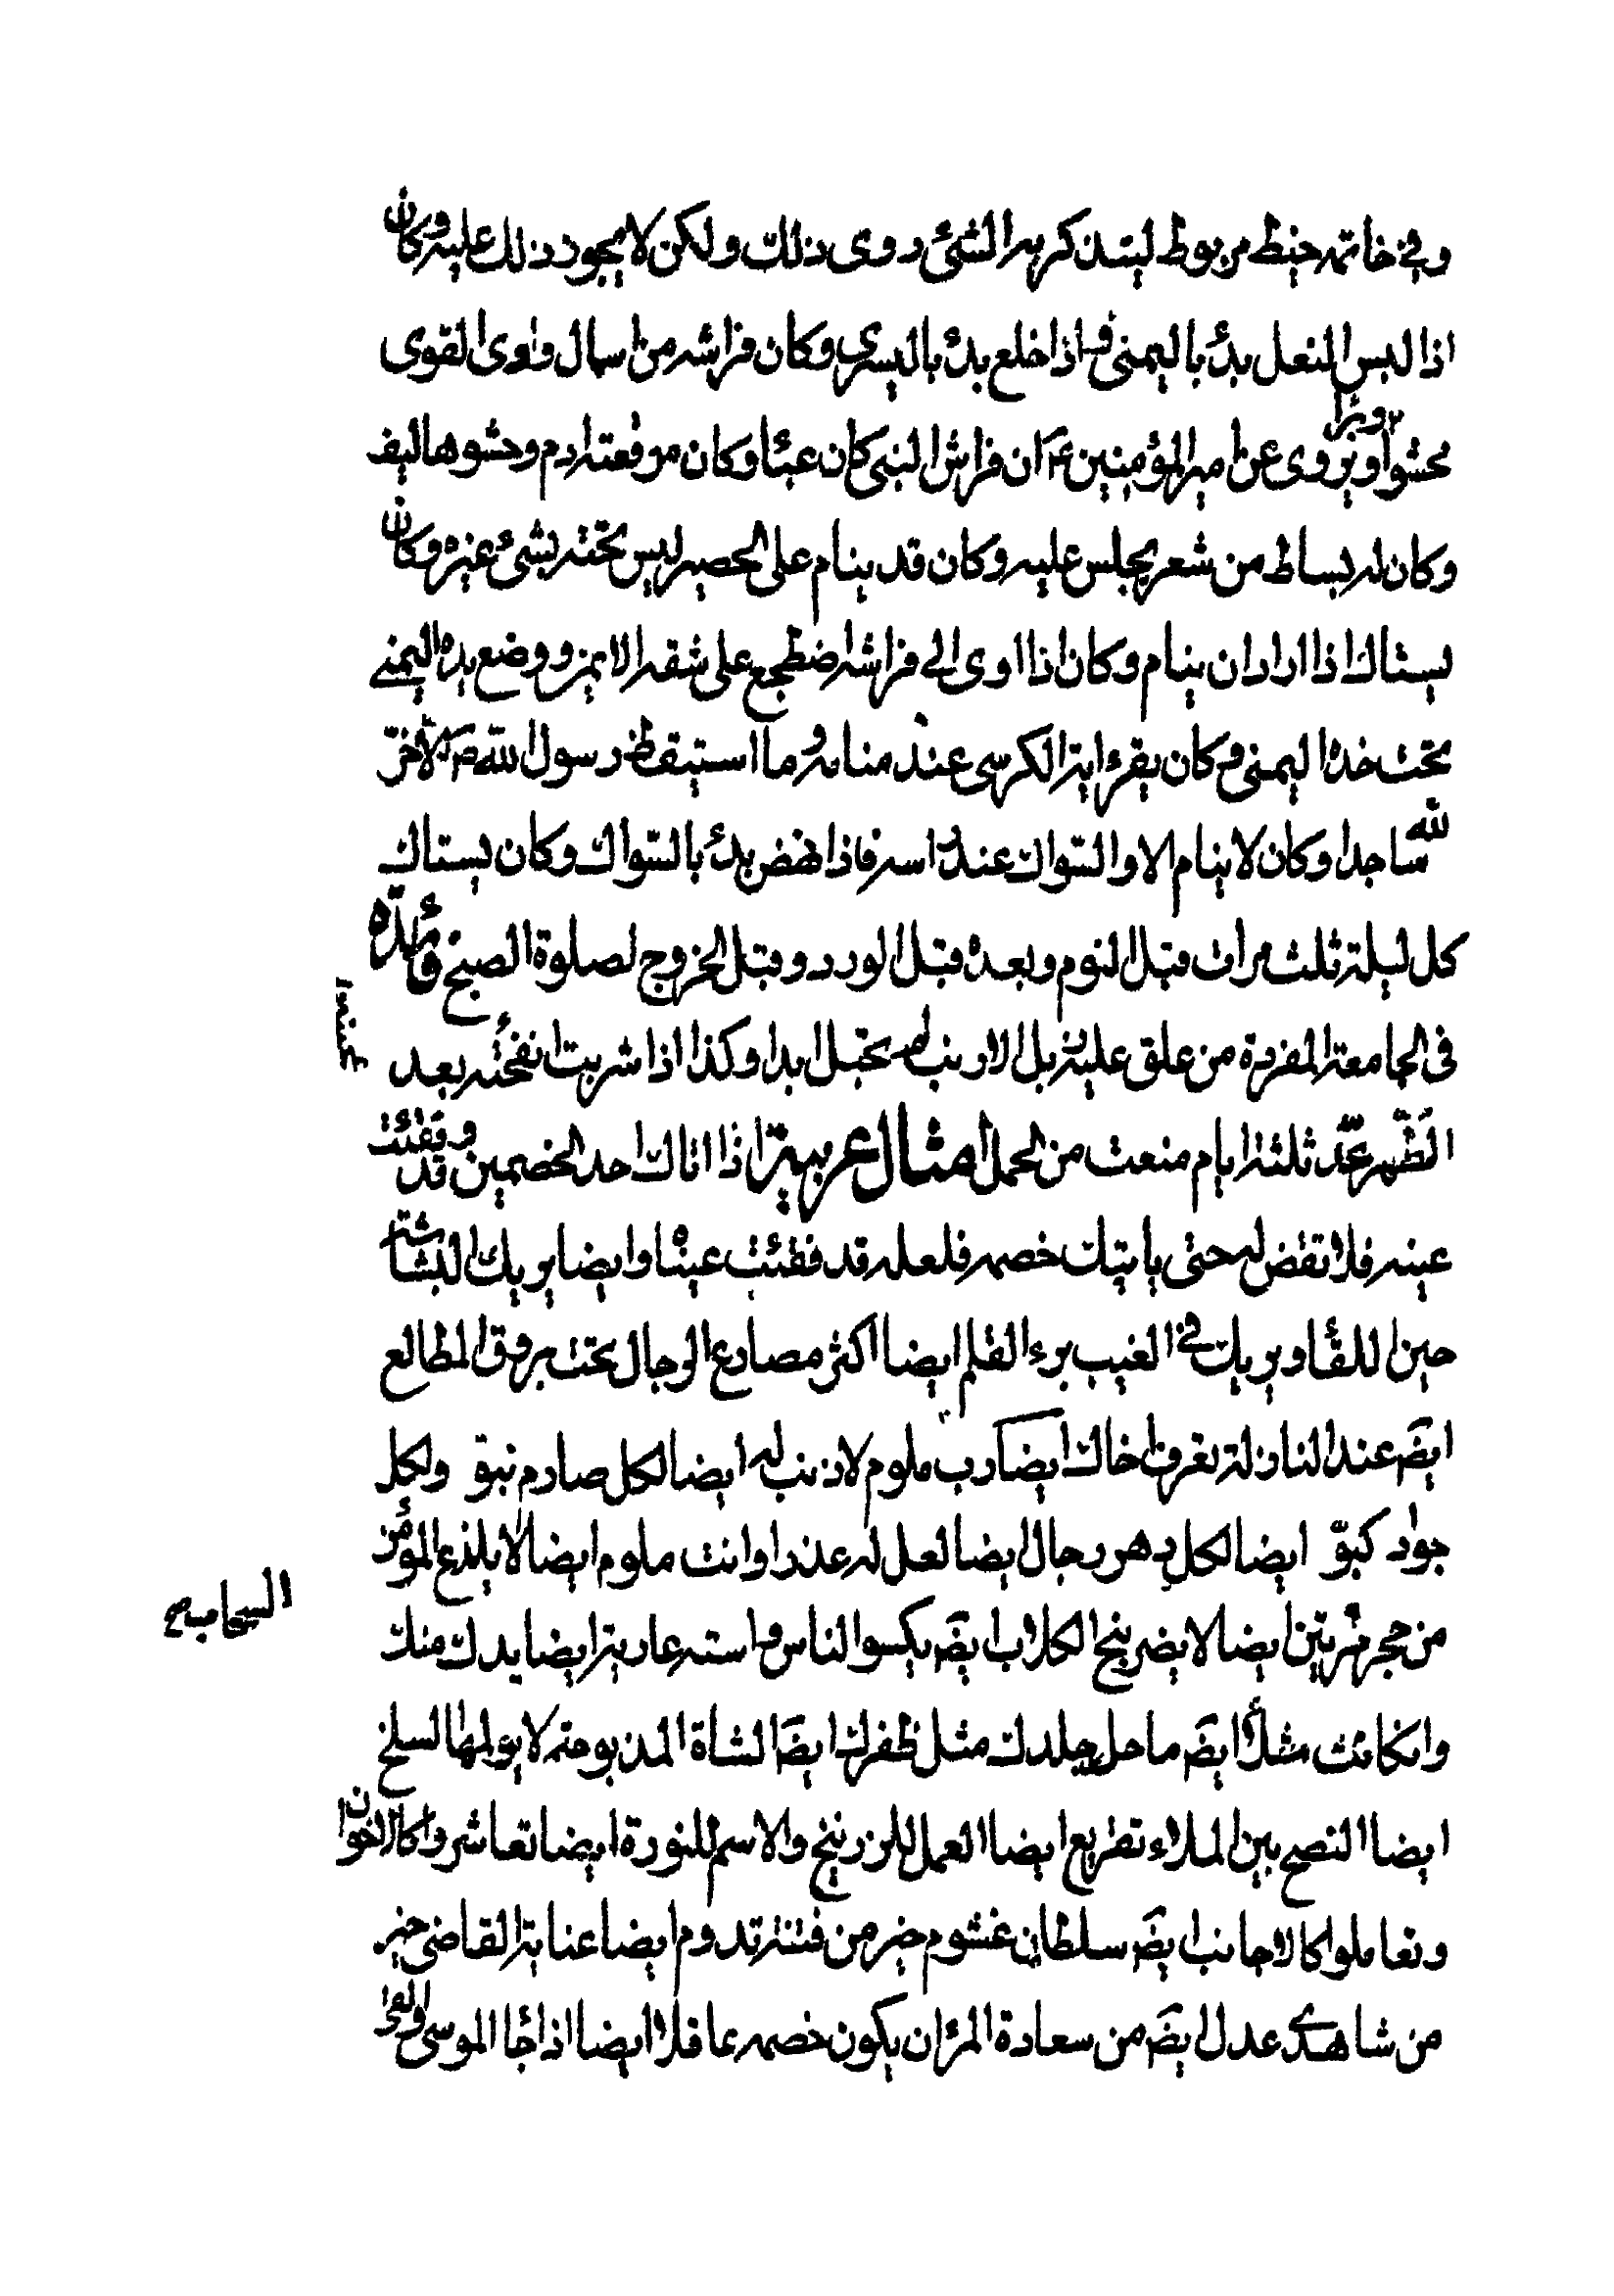 وفي خاتمه خيط مربوط ليتذكر به الشئ روى ذلك ولكن لا يجود ذلك عليه وكان
اذا لبس النعل بدئ باليمنى و اذا خلع بدئ باليسرى وكان فراشه من اسمال واوى القوى
محشوا وبرا ويروى عن امير المؤمنين ع ان فراش النبي كان عبئا وكان مرفقته ادم وحشوها ليف
وكان له بساط من شعر يجلس عليه وكان قد ينام على الحصير ليس تحته بشئ غيره وكان
يستاك اذا اراد ان ينام وكان اذا اوى الى فراشه اضطجع على شقه الايمن ووضع يده اليمنى
تحت خده اليمنى وكان يقرء اية الكرسى عند منامه وما استيقظ رسول الله ص الا خر
لله ساجدا وكان لا ينام الا والسواك عند راسه فاذا نهض بدئ بالسواك وكان يستاك
كل ليلة ثلث مرات قبل النوم وبعده قبل الورد وقبل الخروج لصلوة الصبح فائدة
فى الجامعة المفردة من علق عليه زبل الارنب لم تحبل ابدا وكذا اذا شربت انفحته بعد
الطهر عند ثلثة ايام منعت من الحمل امثال عربية اذا اتاك احد الخصمين وقد فقئت
عينه فلا تقض له حتى ياتيك خصمه فلعله قد فقئت عيناه وايضا يريك البشاشة
حين اللقاء ويريك فى الغيب برء القلم ايضا اكثر مصارع الرجال تحت بروق المطالع
ايضَ عند النازلة تعرف اخاك ايضا رب ملوم لا ذنب له ايضا لكل صارم نبوّ ولكل
جواد كبوّ ايضا لكل دهر رجال ايضا لعل له عذرا وانت ملوم ايضا لا يلذع المؤمن
من حجر مرتين ايضا لا يضر السحاب نبح الكلاب ايضَ يكسو الناس واسته عارية ايضا يدك منك
وانكانت مشلاء ايضَ ما حك جلدك مثل ظفرك ايضَ الشاة المذبوحة لا يؤلمها السلخ
ايضا النصح بين الملاء تقريع ايضا العمل للزرنيخ والاسم للنورة ايضا تعاشروا كالاخوان
وتعاملوا كالاجانب ايضَ سلطان غشوم خير من فتنة تدوم ايضا عناية القاضى خير
من شاهدى عدل ايضَ من سعادة المرء ان يكون خصمه عاقلا ايضا اذا جاء الموسى والقى